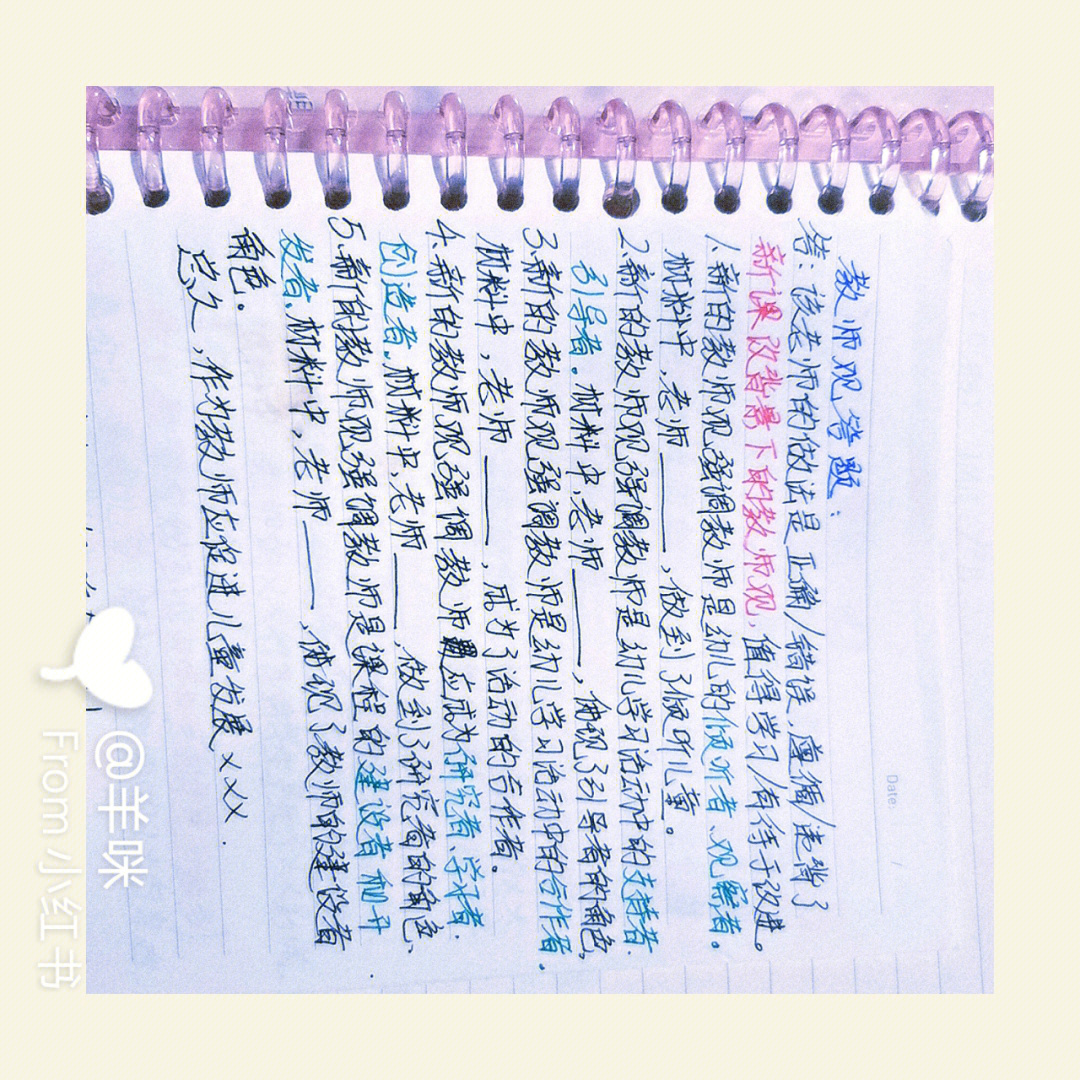 Date:
教师观答题：
答：该老师的做法是正确/错误，遵循/违背了
新课改背景下的教师观，值得学习/有待于改进。
1.新的教师观强调教师是幼儿的倾听者、观察者。
材料中，老师——，做到了倾听儿童。
2.新的教师观强调教师是幼儿学习活动中的支持者
引导者。材料中，老师——，体现了引导者的角色。
3.新的教师观强调教师是幼儿学习活动中的合作者。
材料中，老师——，成为了活动的合作者。
4.新的教师观强调教师应成为研究者、学习者、
创造者，材料中，老师——，做到了研究者的角色、
5.新的教师观强调教师是课程的建设者和开
发者，材料中，老师——，体现了教师的建设者
角色。
总之，作为教师应促进儿童发展×××.
@羊咪
From 小红书